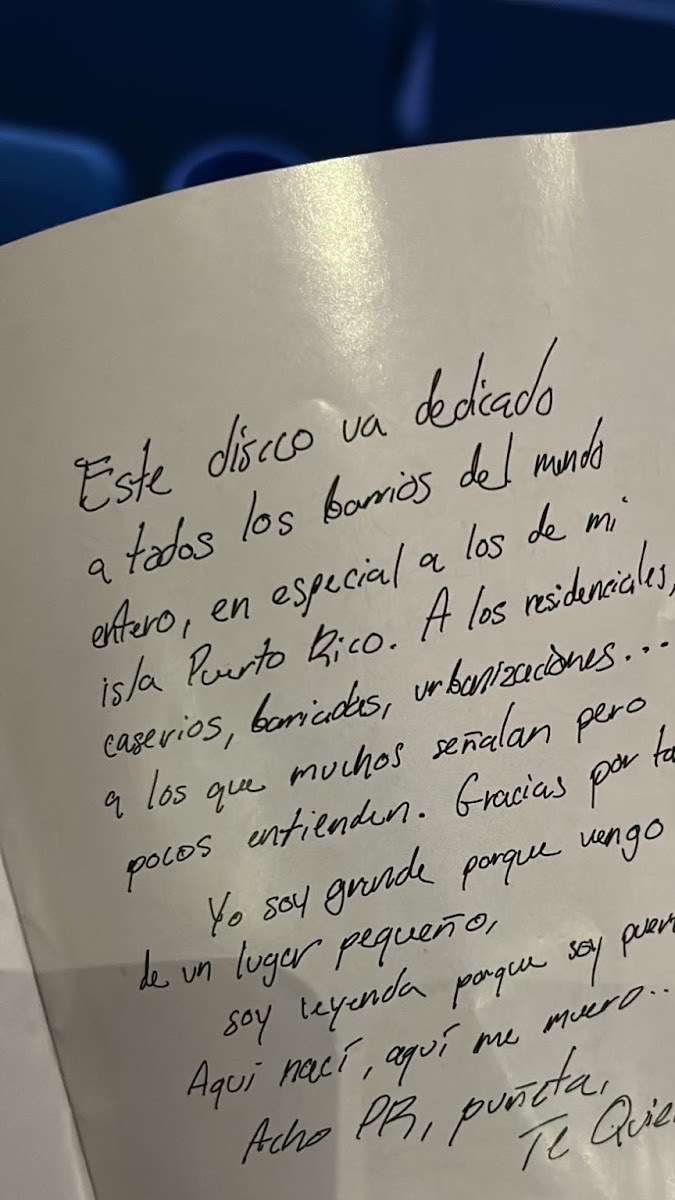 Este discco va dedicado
a todos los barrios del mundo
entero, en especial a los de mi
isla Puerto Rico. A los residenciales,
caserios, barriadas, urbanizaciones...
a los que muchos señalan pero
pocos entienden. Gracias por
Yo soy grande porque vengo
de un lugar pequeño,
soy leyenda porque soy
Aqui nací, aquí me muero..
Acho PR, puñeta,
Te